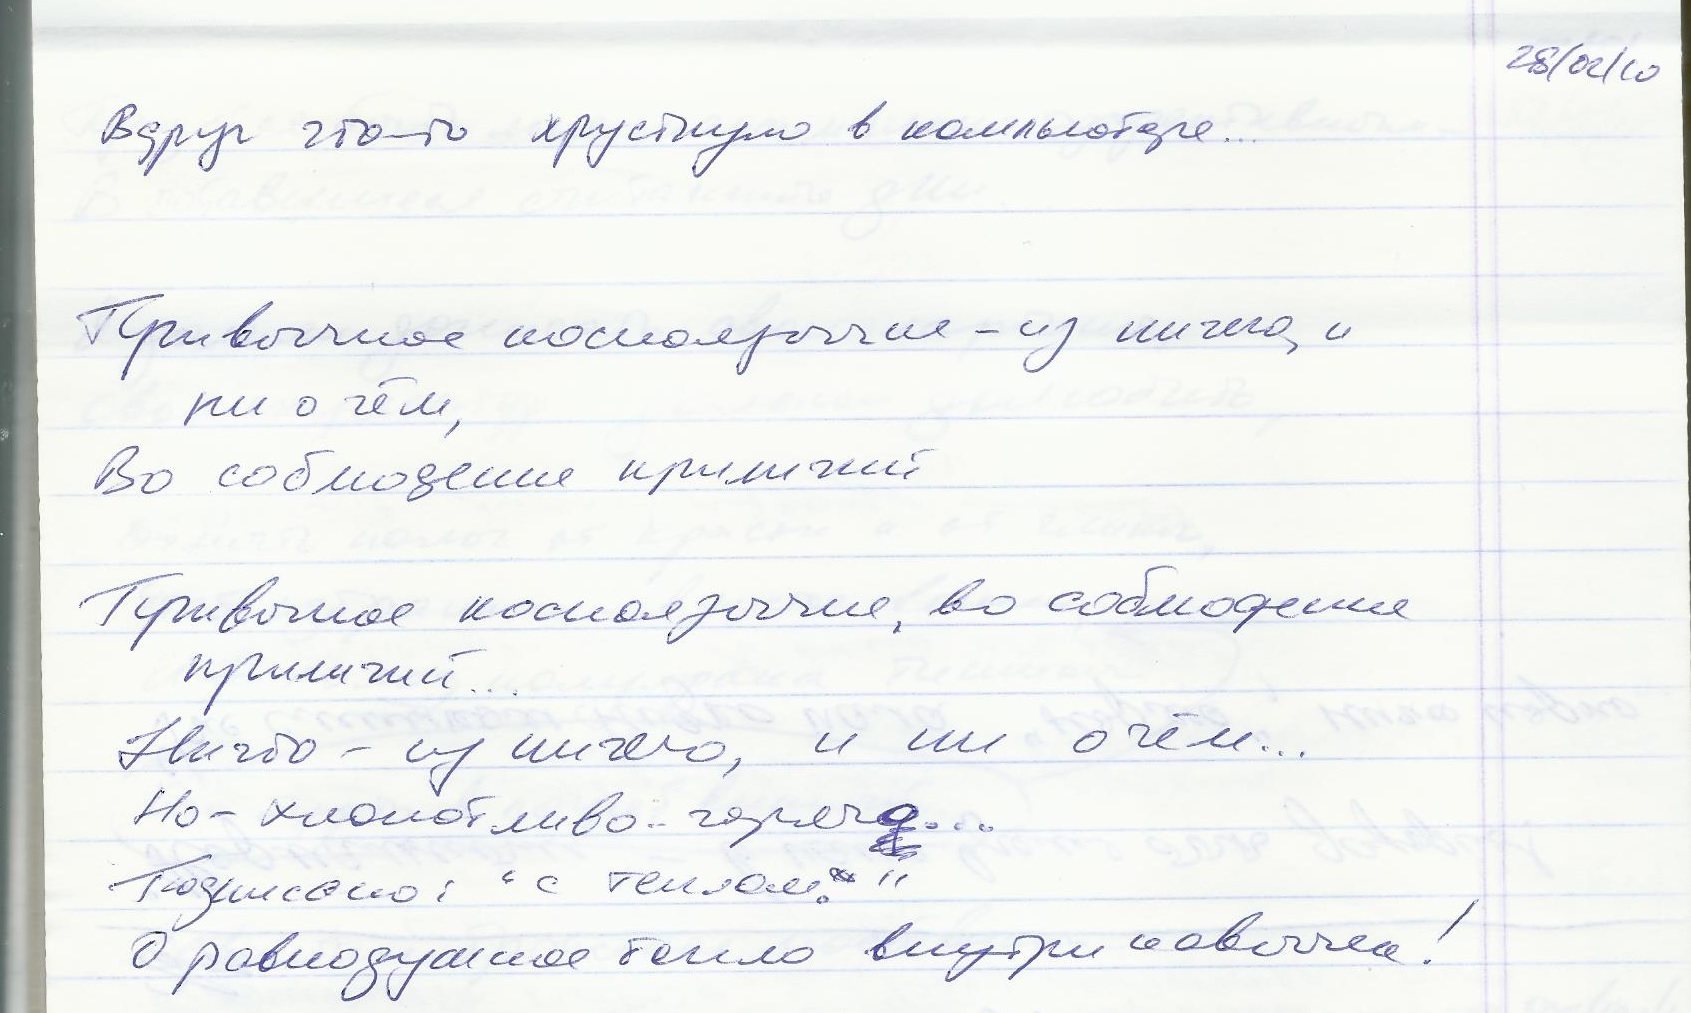 28/02/10
Вдруг что-то хрустнуло в компьютере...
Привычное косноязычие - из ничего, и
ни о чём,
Во соблюдение приличий
Привычное косноязычие, во соблюдение
приличий...
Ничто - из ничего, и ни о чём...
Но - хлопотливо - горячо...
Подписано: "с теплом."
О равнодушное тепло внутри кавычек!